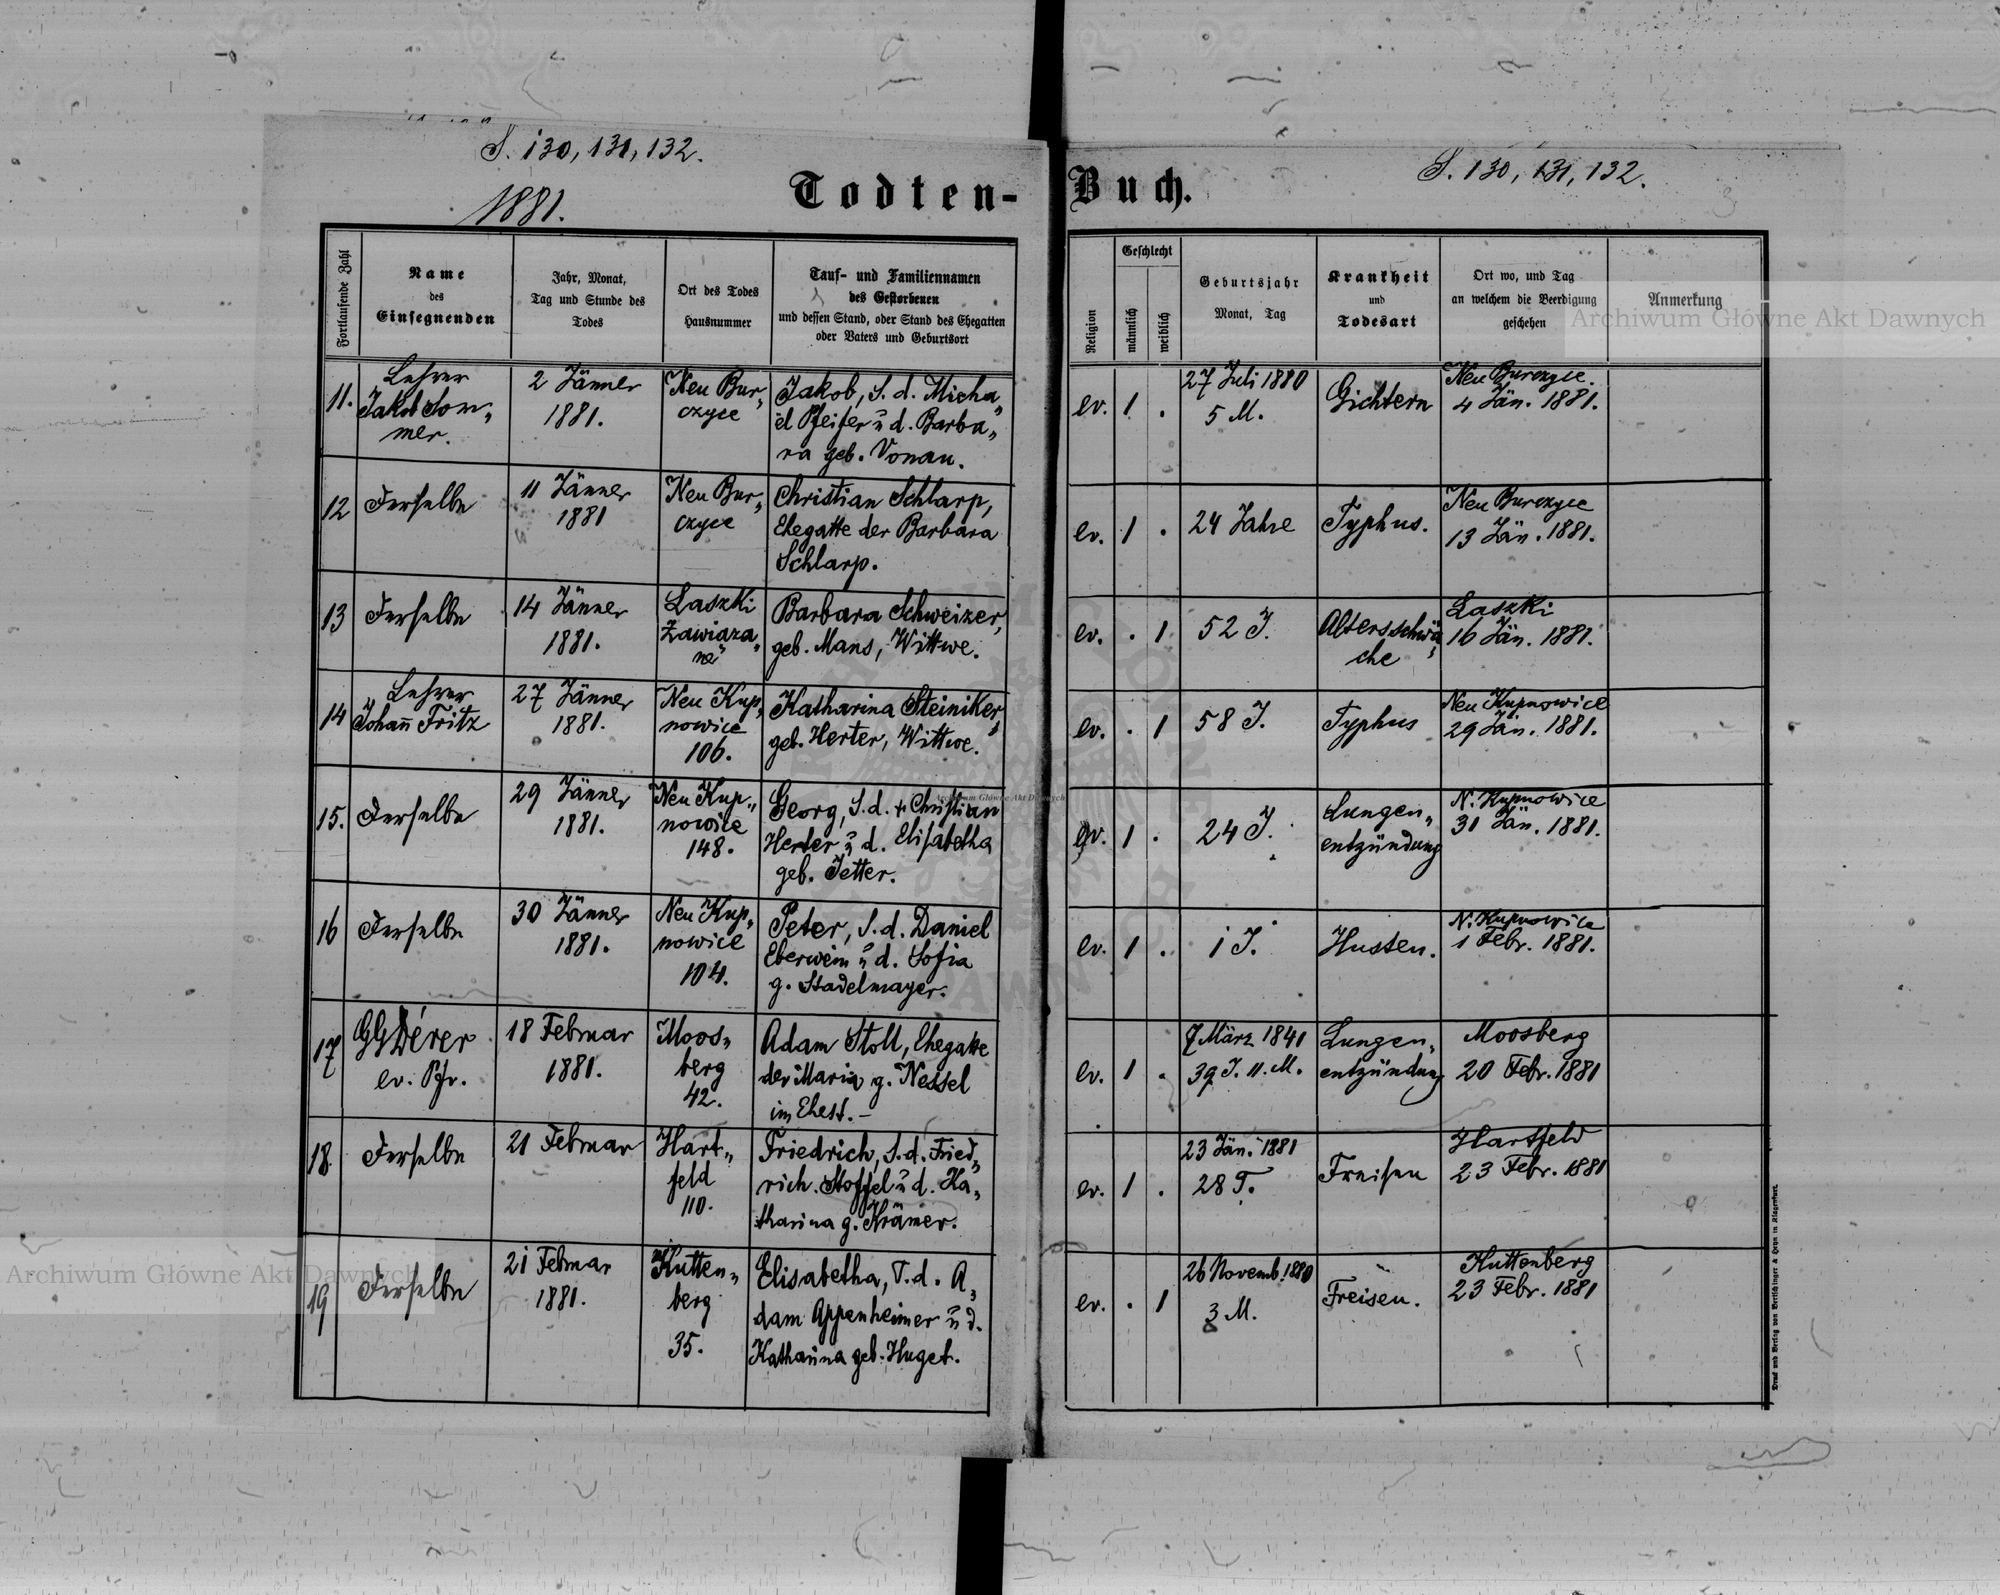 S. 130, 131, 132.
S. 130, 131, 132.
1881.
Todten-Buch.
Fortlaufende Zahl
Name
des
Einsegnenden
Jahr, Monat,
Tag und Stunde des
Todes
Ort des Todes
Hausnummer
Tauf- und Familiennamen
des Gestorbenen
und dessen Stand, oder Stand des Ehegatten
oder Vaters und Geburtsort
Religion
Geschlecht
männlich
weiblich
Geburtsjahr
Monat, Tag
Krankheit
und
Todesart
Ort wo, und Tag
an welchem die Beerdigung
geschehen
Anmerkung
11.
Lehrer
Jakob Som„
mer.
2 Jänner
1881.
Neu Bur„
czyce
Jakob, S. d. Micha„
el Pfeifer u d. Barba„
ra geb. Vonau.
ev.
1
.
27 Juli 1880
5 M.
Gichtern
Neu Burczyce.
4 Jän. 1881.
12
Derselbe
11 Jänner
1881
Neu Bur„
czyce
Christian Schlarp,
Ehegatte der Barbara
Schlarp.
ev.
1
.
24 Jahre
Typhus.
Neu Burczyce
13 Jän. 1881.
13
Derselbe
14 Jänner
1881.
Laszki
Zawiąza„
ne
Barbara Schweizer,
geb. Mans, Wittwe.
ev.
.
1
52 J.
Altersschwä„
che
Laszki
16 Jän. 1881.
14
Lehrer
Johan̄ Fritz
27 Jänner
1881.
Neu Kup„
nowice
106.
Katharina Steiniker,
geb. Herter, Wittwe.
ev.
.
1
58 J.
Typhus
Neu Kupnowice
29 Jän. 1881.
15.
Derselbe
29 Jänner
1881.
Neu Kup„
nowice
148.
Georg, S. d. + Christian
Herter u d. Elisabetha
geb. Jetter.
ev.
1
.
24 J.
Lungen„
entzündung
N. Kupnowice
31 Jän. 1881.
16
Derselbe
30 Jänner
1881.
Neu Kup„
nowice
104.
Peter, S. d. Daniel
Eberwein u d. Sofia
g. Stadelmayer.
ev.
1
.
1 J.
Husten.
N. Kupnowice
1 Febr. 1881.
17
GG Dérer
ev. Pfr.
18 Februar
1881.
Moos„
berg
42.
Adam Stoll, Ehegatte
der Maria g. Nessel
im Ehest. –
ev.
1
.
7 März 1841
39 J. 11. M.
Lungen„
entzündung
Moosberg
20 Febr. 1881
18.
Derselbe
21 Februar
Hart„
feld
110.
Friedrich, S. d. Fried„
rich Stoffel u d. Ka„
tharina g. Krämer.
ev.
1
.
23 Jän. 1881
28 T.
Freisen
Hartfeld
23 Febr. 1881
19
Derselbe
21 Februar
1881.
Kutten„
berg
35.
Elisabetha, T. d. A„
dam Appenheimer u d.
Katharina geb. Huget.
ev.
.
1
26 Novemb. 1880
3 M.
Freisen.
Kuttenberg
23 Febr. 1881
Druck und Verlag von Bertschinger & Heyn in Klagenfurt.
Archiwum Główne Akt Dawnych
Archiwum Główne Akt Dawnych
Archiwum Główne Akt Dawnych